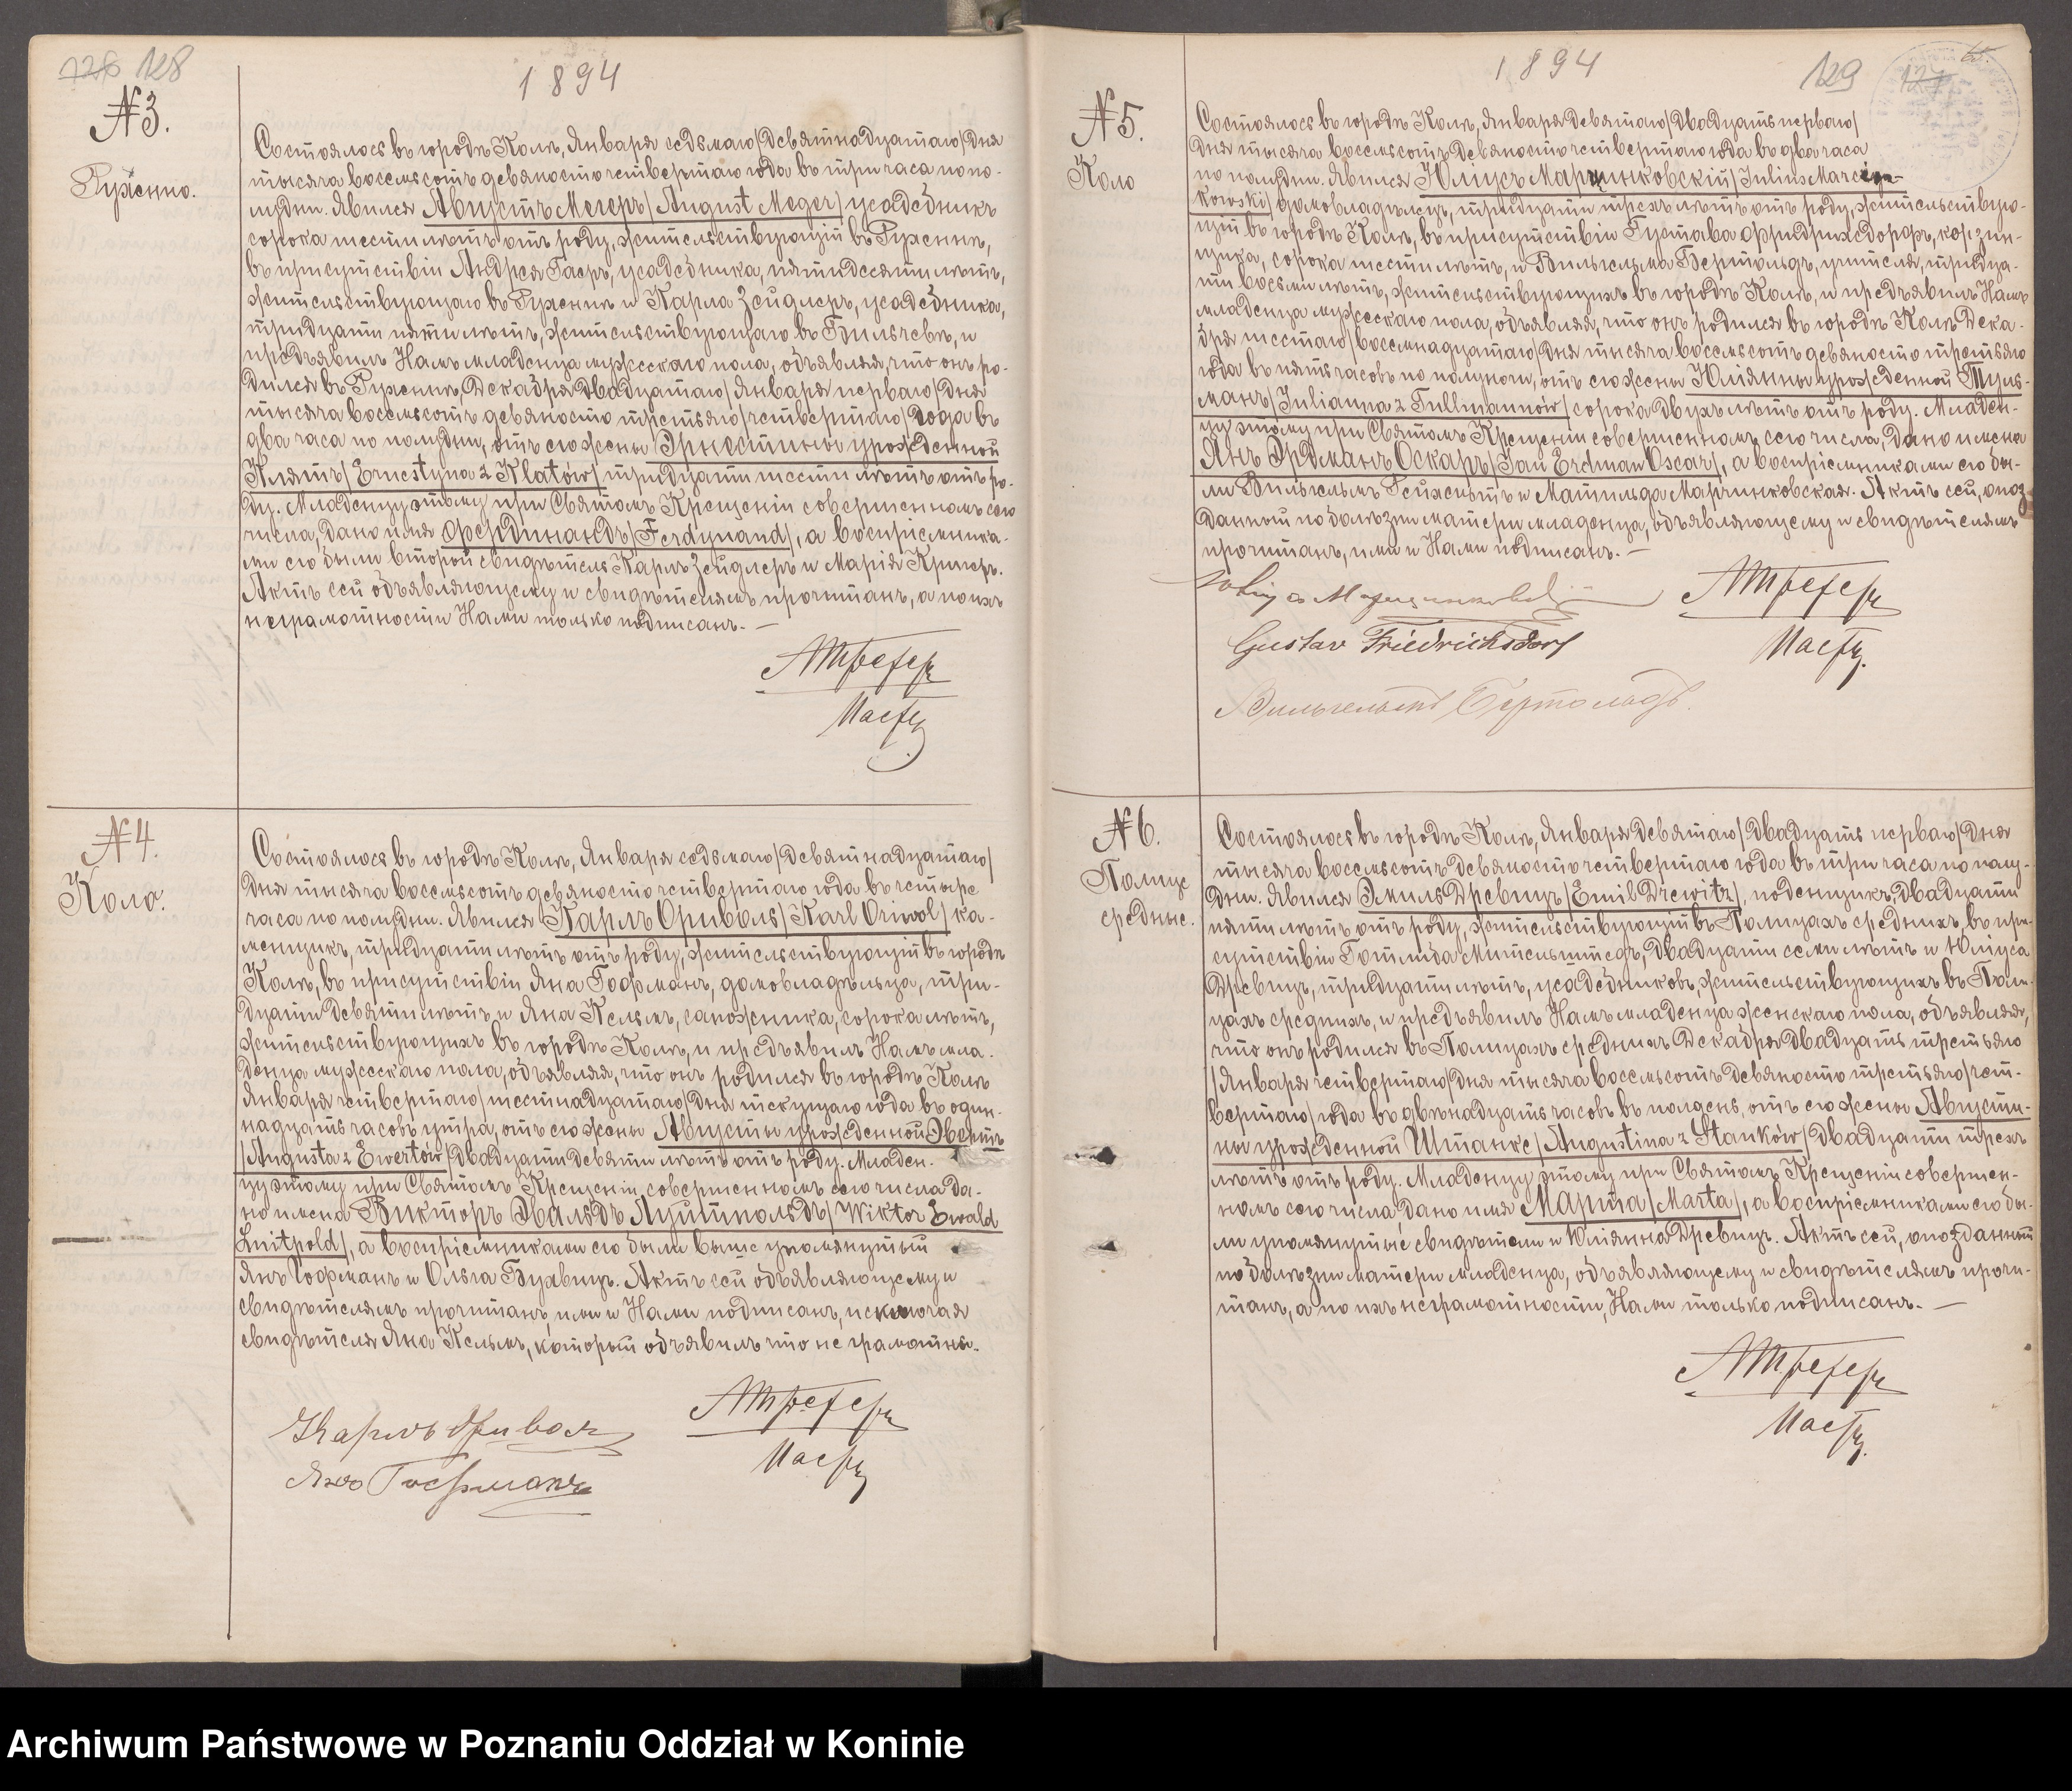 128 128
1894
№3.
Рухенно.
Состоялось въ городѣ Колѣ, Января седьмаго/девятнадцатаго/дня
тысяча восемьсотъ девяносто четвертаго года въ три часа по по-
лудни. Явился Августъ Мегеръ/August Meger/ усадебникъ
сорока шести лѣтъ отъ роду, жительствующій въ Рухеннѣ,
въ присутствіи Андрея Гаеръ, усадебника, пятидесяти лѣтъ,
жительствующаго въ Рухеннѣ и Карла Зейдлеръ, усадебника,
тридцати пяти лѣтъ, жительствующаго въ Бильчевѣ, и
предъявилъ Намъ младенца мужескаго пола, объявляя, что онъ ро-
дился въ Рухеннѣ, Декабря двадцатаго/Января перваго/дня
тысяча восемьсотъ девяносто третьяго/четвертаго/года въ
два часа по полудни, отъ его жены Эрнестины урожденной
Клятъ/Ernestyna z Klatów/ тридцати шести лѣтъ отъ ро-
ду. Младенцу этому при Святомъ Крещеніи совершенномъ сего
числа, дано имя Фердинандъ/Ferdynand/, а воспріемника-
ми его были второй свидѣтель Карлъ Зейдлеръ и Марія Кригеръ.
Актъ сей объявляющему и свидѣтелямъ прочитанъ, а по ихъ
неграмотности Нами только подписанъ. —
№4.
Коло.
Состоялось въ городѣ Колѣ, Января седьмаго/девятнадцатаго/
дня тысяча восемьсотъ девяносто четвертаго года въ четыре
часа по полудни. Явился Карлъ Ориволь/Karl Oriwol/ ка-
менщикъ, тридцати лѣтъ отъ роду, жительствующій въ городѣ
Колѣ, въ присутствіи Яна Гофманъ, домовладѣльца, три-
дцати девяти лѣтъ, и Яна Кельмъ, сапожника, сорока лѣтъ,
жительствующихъ въ городѣ Колѣ, и предъявилъ Намъ мла-
денца мужескаго пола, объявляя, что онъ родился въ городѣ Колѣ
Января четвертаго/шестнадцатаго/дня текущаго года въ один-
надцать часовъ утра, отъ его жены Августы урожденной Эвертъ
/Augusta z Ewertów/ двадцати девяти лѣтъ отъ роду. Младен-
цу этому при Святомъ Крещеніи, совершенномъ сего числа да-
но имена Викторъ Эвальдъ Луитпольдъ/Wiktor Ewald
Luitpold/, а воспріемниками его были выше упомянутый
Янъ Гофманъ и Ольга Бухвицъ. Актъ сей объявляющему и
свидѣтелямъ прочитанъ, ими и Нами подписанъ, исключая
свидѣтеля Яна Кельмъ, который объявилъ что не грамотны.
Карлъ Ориволь
Янъ Гофманъ
1894
129 127 65.
№5.
Коло
Состоялось въ городѣ Колѣ, Января девятаго/двадцать перваго/
дня тысяча восемьсотъ девяносто четвертаго года въ два часа
по полудни. Явился Юліусъ Марцинковскій/Julius Marcin-
kowski/ домовладѣлецъ, тридцати трехъ лѣтъ отъ роду, жительствую-
щій въ городѣ Колѣ, въ присутствіи Густава Фридрихсдорфъ, корзин-
щика, сорока шести лѣтъ, и Вильгельма Бертольдъ, учителя, тридца-
ти восьми лѣтъ, жительствующихъ въ городѣ Колѣ, и предъявилъ Намъ
младенца мужескаго пола, объявляя, что онъ родился въ городѣ Колѣ Дека-
бря шестаго/восемнадцатаго/дня тысяча восемьсотъ девяносто третьяго
года въ пять часовъ по полуночи, отъ его жены Юліянны урожденной Тулъ-
манъ/Julianna z Tullmannów/ сорока двухъ лѣтъ отъ роду. Младен-
цу этому при Святомъ Крещеніи совершенномъ сего числа, дано имена
Янъ Эрдманъ Оскаръ/Jan Erdman Oscar/, а воспріемниками его бы-
ли Вильгельмъ и Матильда Марцинковская. Актъ сей, опоз-
данный по болѣзни матери младенца, объявляющему и свидѣтелямъ
прочитанъ, ими и Нами подписанъ. —
Gustav Friedrichsdorf
Вильгельмъ Бертольдъ.
№6.
Полице
средные.
Состоялось въ городѣ Колѣ, Января девятаго/двадцать перваго/дня
тысяча восемьсотъ девяносто четвертаго года въ три часа по полу-
дни. Явился Эмиль Древицъ/Emil Drewitz/, поденщикъ, двадцати
пяти лѣтъ отъ роду, жительствующій въ Полицахъ среднихъ, въ при-
сутствіи Готлиба Мительштедъ, двадцати семи лѣтъ и Юліуса
Древицъ, тридцати лѣтъ, усадебниковъ, жительствующихъ въ Поли-
цахъ среднихъ, и предъявилъ Намъ младенца женскаго пола, объявляя,
что онъ родился въ Полицахъ среднихъ Декабря двадцать третьяго
/Января четвертаго/дня тысяча восемьсотъ девяносто третьяго/чет-
вертаго/года въ двѣнадцать часовъ въ полдень, отъ его жены Августи-
ны урожденной Штанке/Augustina z Stanków/ двадцати трехъ
лѣтъ отъ роду. Младенцу этому при Святомъ Крещеніи совершен-
номъ сего числа, дано имя Марта/Marta/, а воспріемниками его бы-
ли упомянутые свидѣтели и Юліянна Древицъ. Актъ сей, опозданный
по болѣзни матери младенца, объявляющему и свидѣтелямъ прочи-
танъ, а по ихъ неграмотности, Нами только подписанъ. —
Archiwum Państwowe w Poznaniu Oddział w Koninie